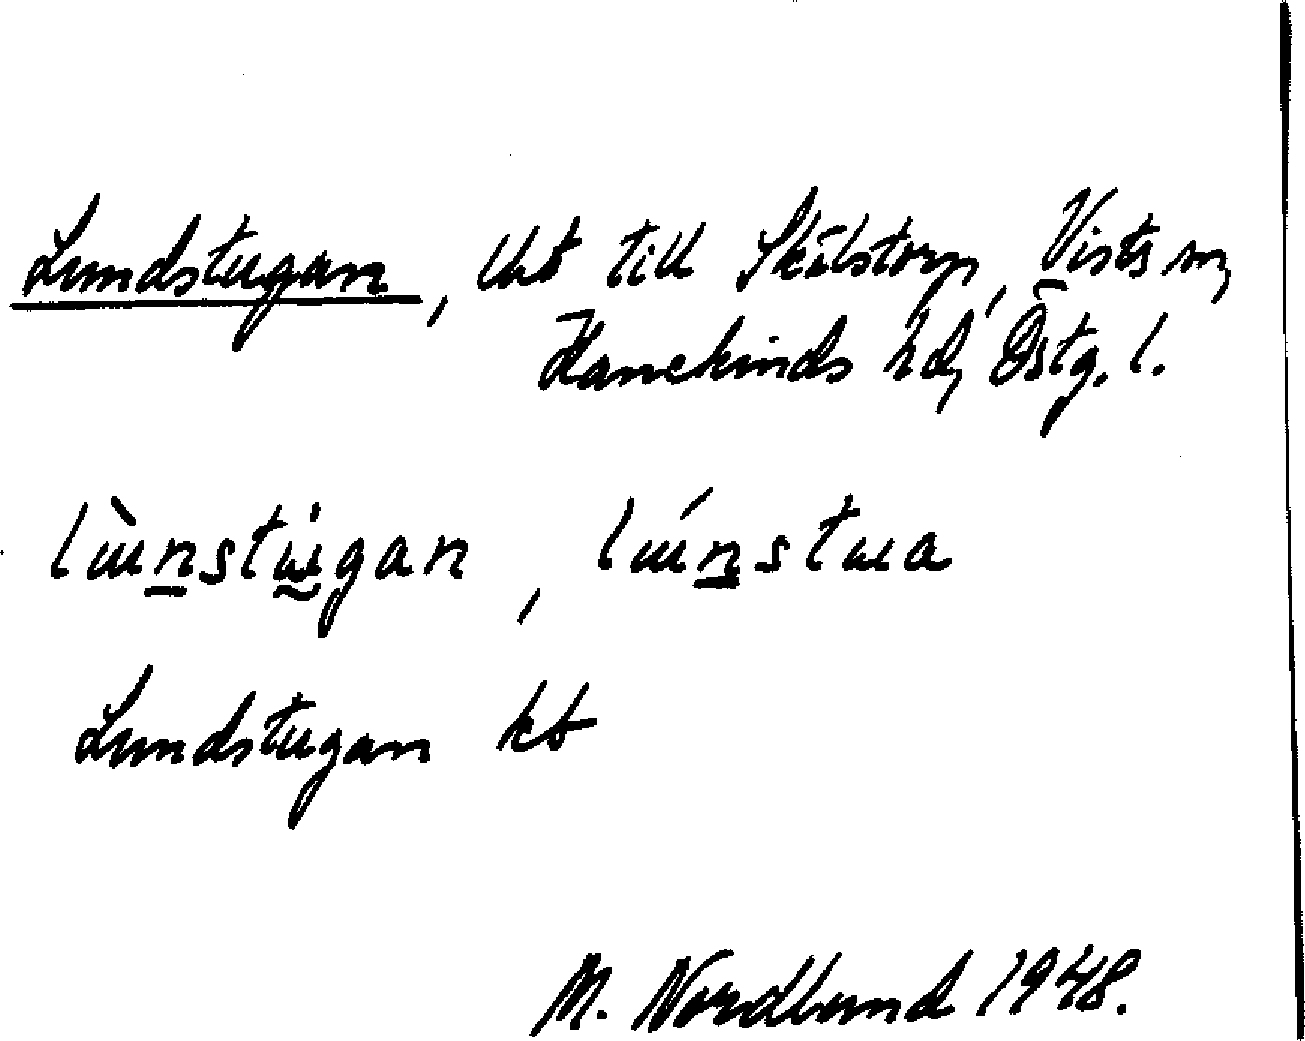 Lundstugan, lht till Skälstorp, Vists sn,
Hanekinds hd, Östg. l.
lɯ̀nstɯ̀gan, lɯ́nstɯa
Lundstugan kb
M. Nordlund 1948.